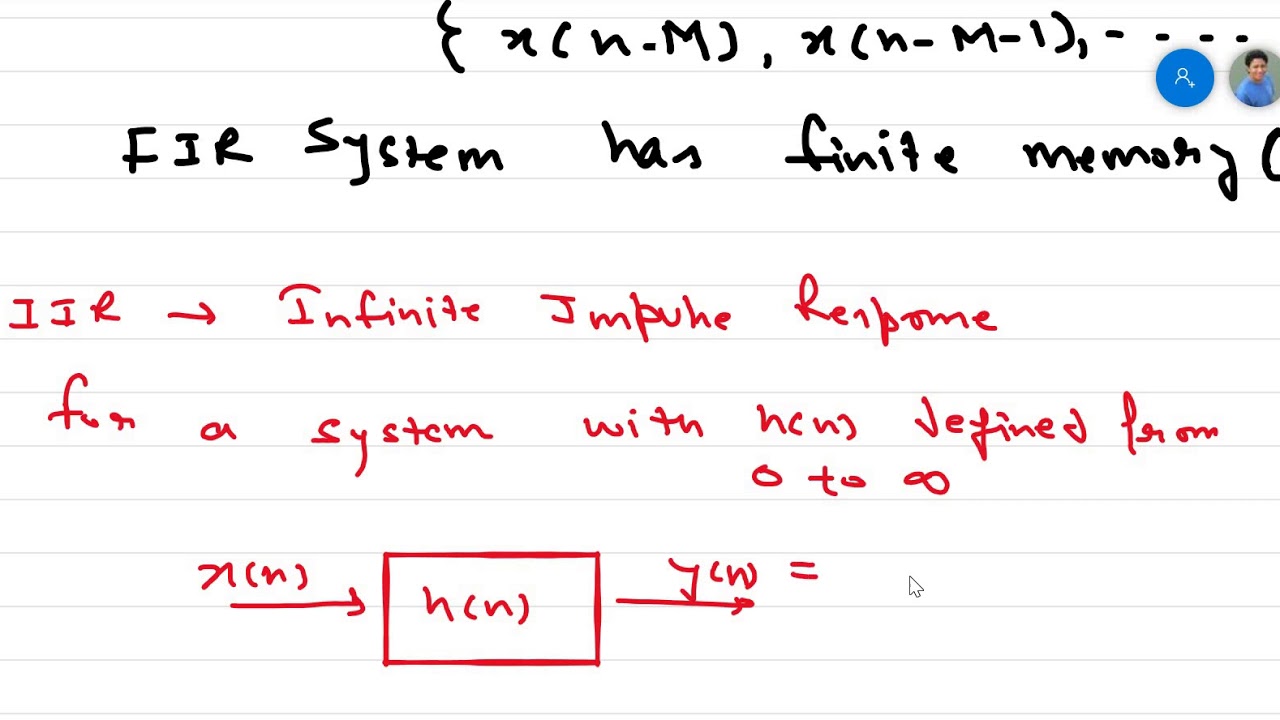 { x(n-M), x(n-M-1), - - - -
FIR System has finite memory (
IIR → Infinite Impulse Response
for a system with h(n) defined from
0 to ∞
x(n) h(n) y(n) =